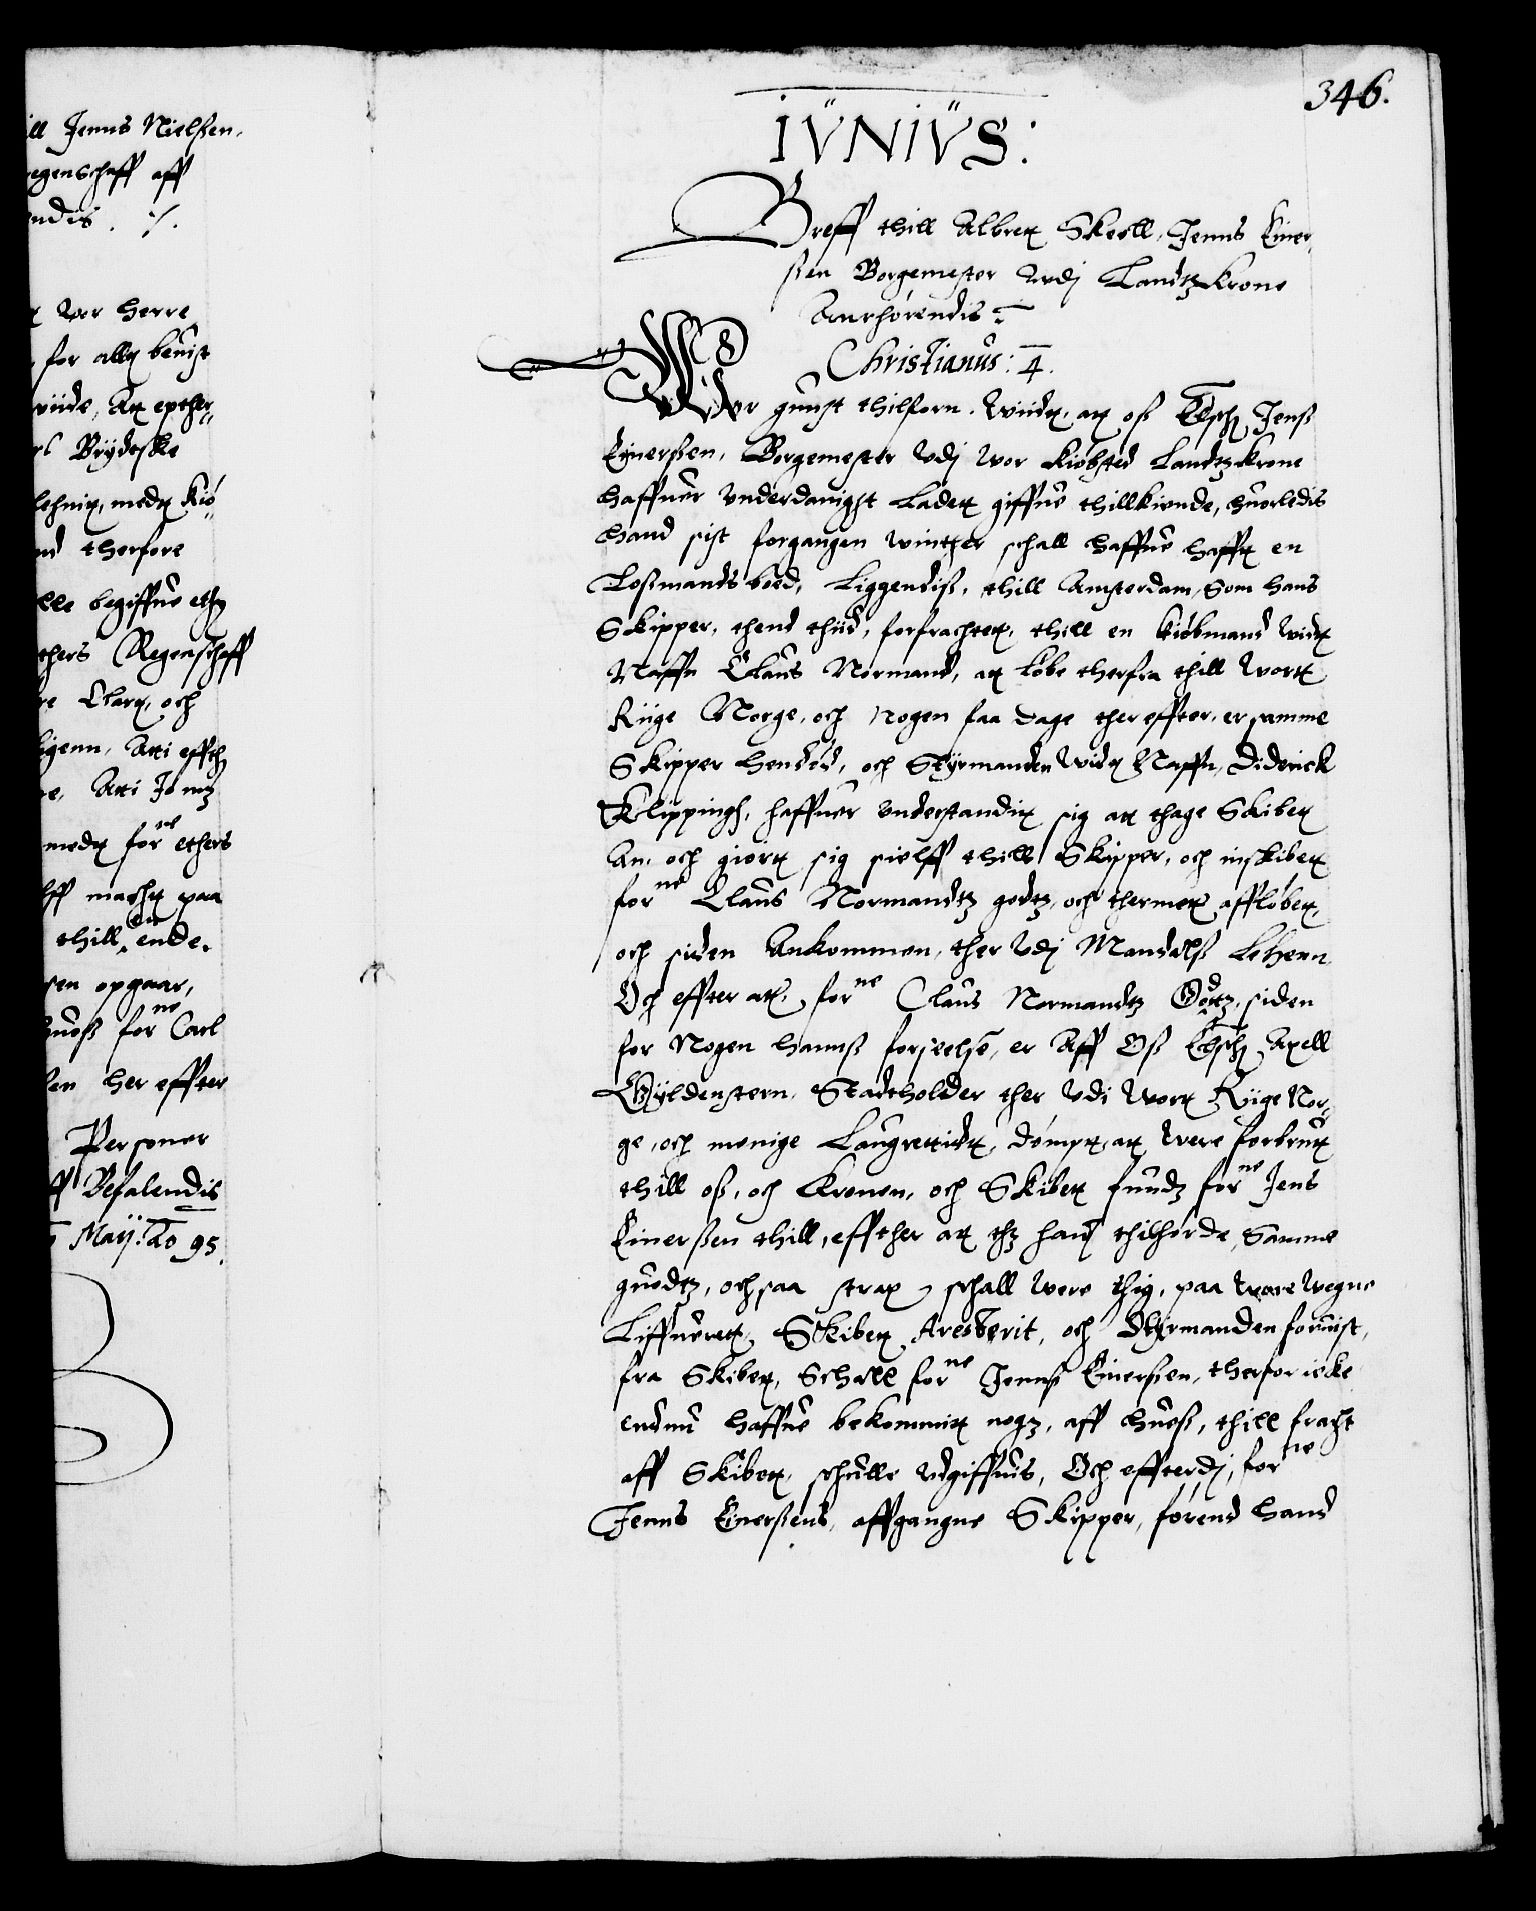 ill Jenns Nielßen.
egenschaff aff
endis. ⁒.
wor herre
for alle beuist
wiide, At epther¬
Brÿdeske
lehnit, medt Kiö¬
nd therfore
lle begiffue ethr
thers Regenschaff
re Clart, och
ligenn, Atti effthr
e, Atti Jo mz
medt forne ethers
ff macht paa
thill en ende.
sen opgaar,
huoß forne Carl
len her effter
Personer
ff Befalendis
Maij: Ao 95.
346.
IVNIVS:
Breff thill Albret Skeell, Jenns Einer
ßen Borgemester udj Landtzkrone
Anrhörendis
Christianus: 4.
Wor gunst thilforn. Wiidt, at oß Elsch Jenß
Eÿnerßen, Borgemester Udj wor Kiöbsted Landtzkrone
haffuer underdanigst Ladet giffue thillkiende, huorledis
hand sist forgangen winther schall haffue hafft en
Boßmands boed, Liggendiß, thill Amsterdam, Som hans
Skipper, thend thiid, forfrachtet, thill en kiöbmand widt
Naffn Claus Normand, at löbe therfra thill wort
Riige Norge, och Nogen faa dage ther effter, er samme
Skipper hendöd, och Stÿrmanden widt Naffn, Diderick
Klippingh, haffuer understandit sig at thage Skibet
An, och giort sig sielff thill Skipper, och inskibet
forne Claus Normandtz godtz, och thermet afflöbet,
och siden Ankommen, ther Udj Mandalß Lehenn
Och effter at, forne Claus Normandtz Godtz, siden
for Nogen hannß forseelse, er Aff Oß Elsch Axell
Gÿldenstern, Stadtholder ther Udi wort Riige Nor¬
ge, och menige Laugrettidt, dömpt, at were forbrut
thill oß, och Kronen, och Skibet fundz forne Jens
Einerßen thill, effther at thz hand thilhörde, Samme
guodtz, och saa strax schall were thig, paa wore wegne
Liffueret, Skibet Aresterit, och Stÿrmanden foruist,
fra Skibet, Schall forne Jennß Einerßen, therfor icke
endnu haffue bekommit nogz, aff huoß, thill fracht
aff Skibet, schulle udgiffuis, Och effterdj, forne
Jenns Einerßens, affgangne Skipper, förend hand